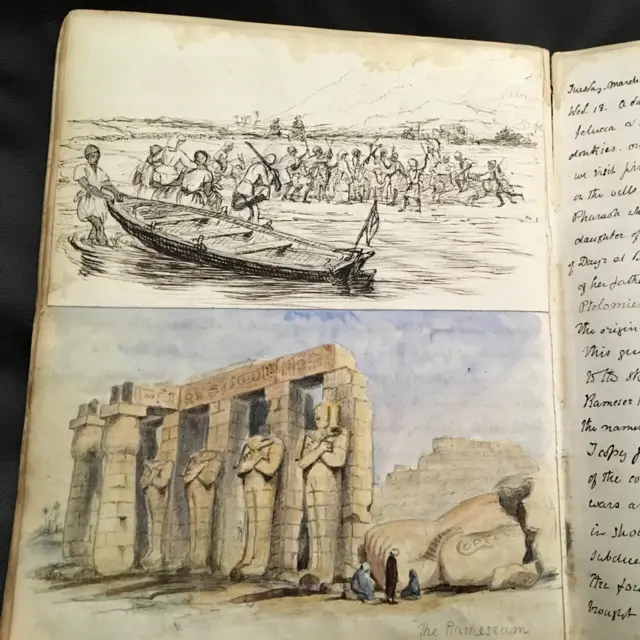 The Rameseum
Tuesday. March
Wed 18. A da
felucca a
donkies. an
we visit
or the vill
Pharaoh
daughter of
of Days at
of her fathe
Ptolomies
the origin
this gre
to the st
Rameses
the namin
I copy
of the co
wars a
in show
subdued
the fore
brought